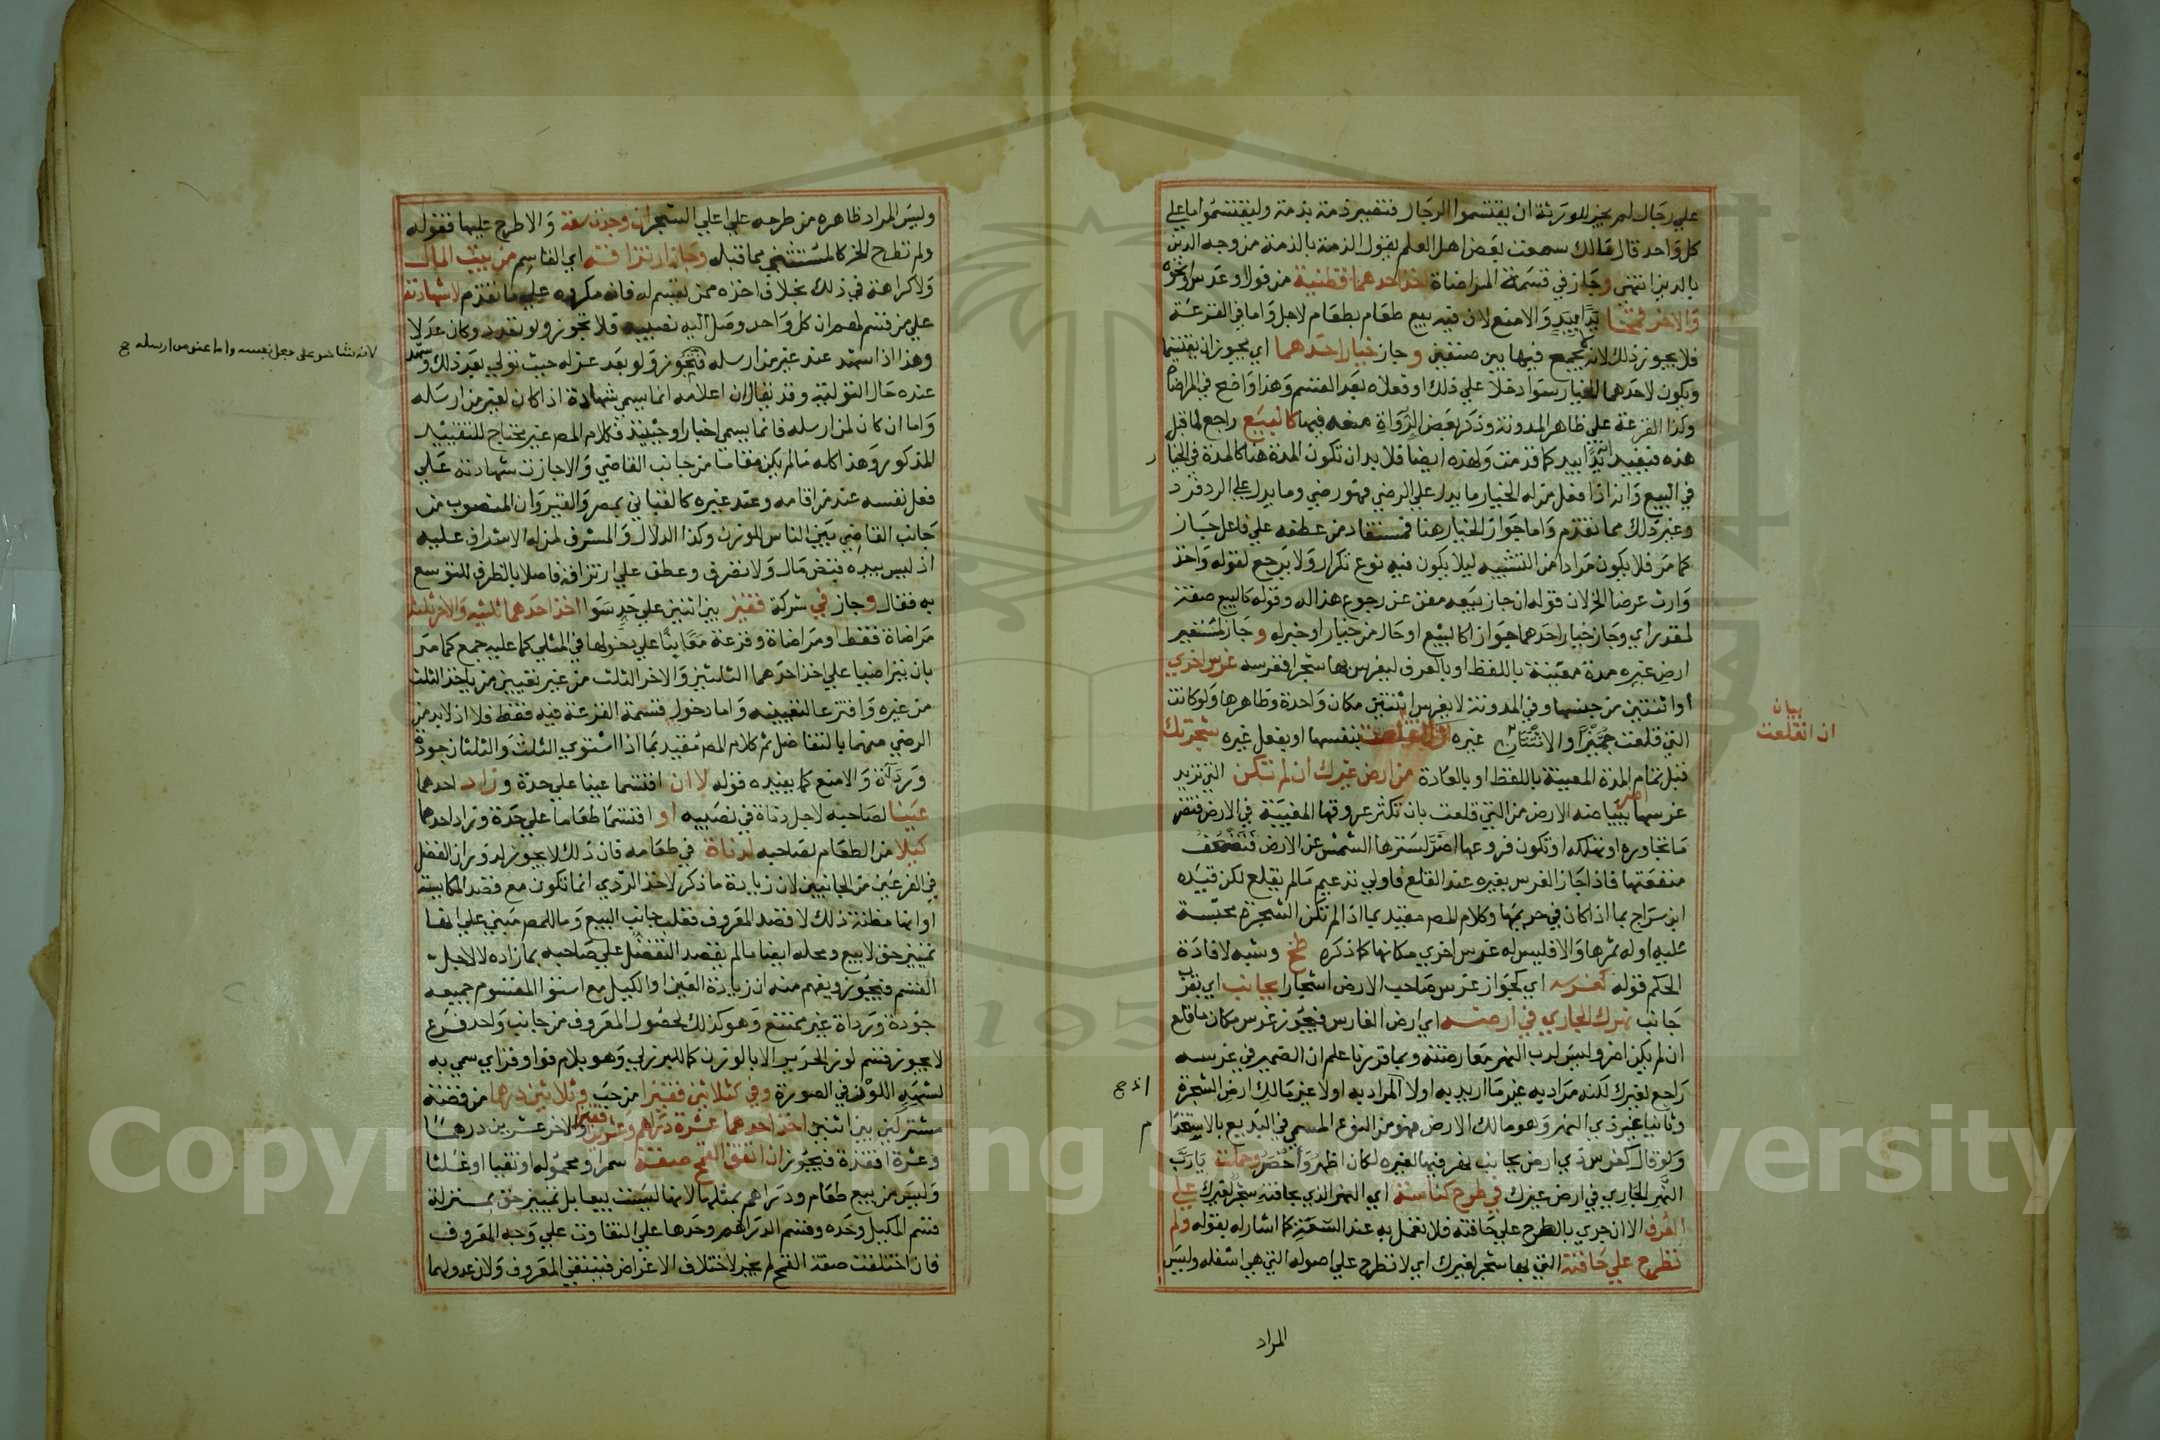 علي رجال لم يجز للورثة ان يقتسموا الرجال فتقتسير ذمة بذمة وليقتسموا ما علي
كل واحد قال مالك سمعت بعض اهل العلم يقول الذمة بالذمة من وجه الدين
بالدين انتهى وجاز في قسمة المراضاة اخذ احدهما قطنية من فول او عدس او نحوه
والاخر قمحا يدا بيد والا منع لان فيه بيع طعام بطعام لاجل واما في القرعة
فلا يجوز ذلك لانه لا يجمع فيها بين صنفين وجاز خيار احدهما اي يجوز ان يقتسما
ويكون لاحدهما الخيار سوا دخلا علي ذلك او فعلاه بعد القسم وهذا واضح في المراضاة
وكذا القرعة علي ظاهر المدونة وذكر بعض الرواة منعه فيها كالبيع راجع لما قبل
هذه فيفيد يدا بيد كما قدمت ولهذه ايضا فلا بد ان تكون المدة هنا كالمدة في الخيار
في البيع وانه اذا فعل من له الخيار ما يدل علي الرضي فهو رضي وما يدل علي الرد فرد
وغير ذلك مما تقدم واما جواز الخيار هنا فمستفاد من عطفه علي فاعل جاز
كما مر فلا يكون مرادا من التشبيه ليلا يكون فيه نوع تكرار ولا يرجع لقوله واخذ
وارث عرضا الخ لان قوله ان جاز بيعه مغن عن رجوع هذا له وقوله كالبيع صفة
لمقدر اي وجاز خيار احدهما جوازا كالبيع او حال من خيار او خبر له وجاز لمستعير
ارض غيره مدة معينة باللفظ او بالعرف ليغرس بها شجرا فغرسه غرس اخري
او اثنتين من جنسها وفي المدونة لا يغرس اثنتين مكان واحدة وظاهرها ولو كانت
التي قلعت جميزا والاثنتان غيره ان انقلعت بنفسها او بفعل غيره شجرتك
قبل تمام المدة المعينة باللفظ او بالعادة من ارض غيرك ان لم تكن التي تريد
غرسها اضر ببياضه الارض من التي قلعت بان تكثر عروقها المغيبة في الارض فتضر
ما تجاوره او تهلكه او تكون فروعها اضر لسترها الشمس عن الارض فتضعف
منفعتها فاذا جاز الغرس بغيره عند القلع فاولي تدعيم ما لم يقلع لكن قيده
ابن سراج بما اذا كان في حريمها وكلام المص مقيد بما اذا لم تكن الشجرة محبسة
عليه او له ثمرها والا فليس له غرس اخري مكانها كما ذكره طخ وشبه لافادة
الحكم قوله كغرسه اي كجواز غرس صاحب الارض اشجارا بجانب اي بقرب
جانب نهرك الجاري في ارضه اي ارض الغارس فيجوز غرس مكان ما قلع
ان لم يكن اضر وليس لرب النهر معارضته وبما قررنا علم ان الضمير في غرسه
راجع لغيرك لكنه مراد به غير ما اريد به اولا المراد به اولا غير مالك ارض الشجرة
وثانيا غير ذي النهر وهو مالك الارض فهو من النوع المسمي في البديع بالاستخدام
ولو قال كغرس ذي ارض بجانب نهر فيها لغيره لكان اظهر واخصر وحملت يا رب
النهر الجاري في ارض غيرك في طرح كناسته اي النهر الذي بحافته شجر لغيرك علي
العرف الا ان جري بالطرح علي حافته فلا تعمل به عند السعة كما اشار له بقوله ولم
تطرح علي حافته التي بها شجر لغيرك اي لا تطرح علي اصوله التي هي اسفله وليس
المراد
بيان
ان انقلعت
وليس المراد ظاهره من طرحه علي اعلي الشجر ان وجدت سعة والا طرح عليها فقوله
ولم تطرح الخ كالمستثني مما قبله وجاز ارتزاقه اي القاسم من بيت المال
ولا كراهة في ذلك بخلاف اخذه ممن يقسم له فانه مكروه علي ما تقدم لا شهادته
علي من قسم لهم ان كل واحد وصل اليه نصيبه فلا تجوز ولو تعدد وكان عدلا
وهذا اذا شهد عند غير من ارسله فتجوز ولو بعد عزله حيث تولي بعد ذلك وشهد
عنده حال التولية وقد يقال ان اعلامه انما يسمي شهادة اذا كان لغير من ارسله
واما ان كان لمن ارسله فانما يسمي اخبارا وحينئذ فكلام المص غير محتاج للتقييد
المذكور وهذا كله ما لم يكن مقاما من جانب القاضي والا جازت شهادته علي
فعل نفسه عند من اقامه وعند غيره كالقباني بمصر والقبر وان المنصوب من
جانب القاضي بين الناس للوزن وكذا الدلال والمشرف لمن له الاشراف عليه
اذ ليس بيده قبض مال ولا تفرق وعطف علي ارتزاقه فاصلا بالظرف للتوسع
به فقال وجاز في شركة قفيز بين اثنين علي حد سوا اخذ احدهما ثلثيه والاخر ثلثه
مراضاة فقط او مراضاة وقرعة معا بنا علي دخولها في المثلي كما عليه جمع كما مر
بان يتراضيا علي اخذ احدهما الثلثين والاخر الثلث من غير تعيين من ياخذ الثلث
من غيره واقترعا لتعيينه واما دخول قسمة القرعة فيه فقط فلا اذ لا بد من
الرضي منهما بالتفاضل ثم كلام المص مقيد بما اذا استوي الثلث والثلثان جودة
ورداة والا منع كما يفيده قوله لا ان اقتسما عينا علي حدة وزاد احدهما
عينا لصاحبه لاجل دناة في نصيبه او اقتسما طعاما علي حدة وزاد احدهما
كيلا من الطعام لصاحبه لدناة في طعامه فان ذلك لا يجوز لدوران الفضل
في الفرعين من الجانبين لان زيادة ما ذكر لاخذ الردي انما تكون مع قصد المكايسة
او انها مظنة ذلك لا قصد المعروف فغلب جانب البيع وما للمص مبني علي انها
تمييز حق لا بيع ومحله ايضا ما لم يقصد التفضل علي صاحبه بما زاده لا لاجل
القسم فيجوز ويفهم منه ان زيادة العين او الكيل مع استوا المقسوم جميعه
جودة ورداة غير ممتنع وهو كذلك لحصول المعروف من جانب واحد فرع
لا يجوز قسم لوز الحرير الا بالوزن كما للبرزلي وهو بلام فواو فزاي سمي به
لشبهه اللوز في الصورة وفي كثلاثين قفيزا من حب وثلاثين درهما من فضة
مشتركين بين اثنين اخذ احدهما عشرة دراهم وعشرين قفيزا والاخر عشرين درهما
وعشرة اقفزة فيجوز ان اتفق القمح صفة سمرا ومحمولة او نقيا او غلثا
وليس من بيع طعام ودراهم بمثلها لانها ليست بيعا بل تمييز حق بمنزلة
قسم المكيل وحده وقسم الدراهم وحدها علي التفاوت علي وجه المعروف
فان اختلفت صفة القمح لم يجز لاختلاف الاغراض فينتفي المعروف ولان عدولهما
Copyright © King Saud University
1957